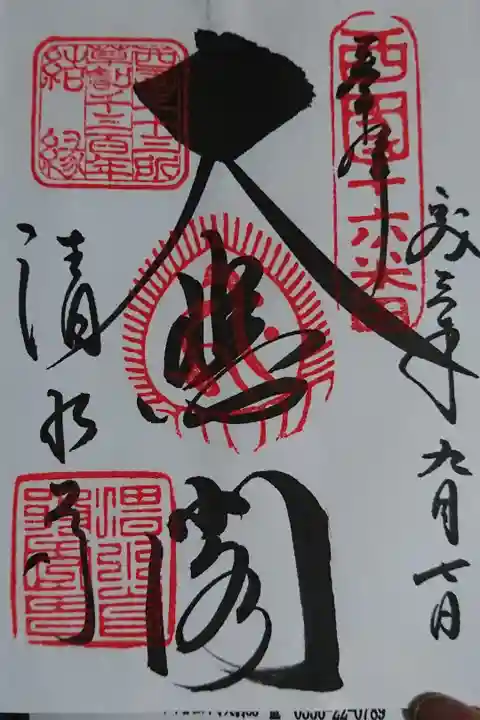 奉拝
西国十六番
令和三年九月七日
大悲閣
西国三十三所
草創千三百年
結縁
清水寺